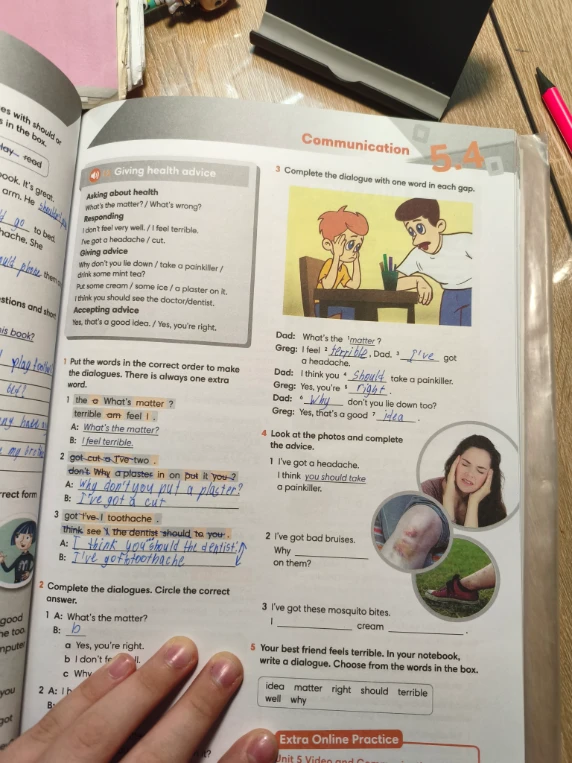 Communication 5.4
Giving health advice
Asking about health
What's the matter? / What's wrong?
Responding
I don't feel very well. / I feel terrible.
I've got a headache / cut.
Giving advice
Why don't you lie down / take a painkiller /
drink some mint tea?
Put some cream / some ice / a plaster on it.
I think you should see the doctor/dentist.
Accepting advice
Yes, that's a good idea. / Yes, you're right.
1 Put the words in the correct order to make
the dialogues. There is always one extra
word.
1 the a What's matter ?
terrible am feel I .
A: What's the matter?
B: I feel terrible.
2 got cut a I've two .
don't Why a plaster in on put it you ?
A: Why don't you put a plaster?
B: I've got a cut
3 got I've I toothache .
Think see I the dentist should to you .
A: I think you should the dentist
B: I've got toothache
2 Complete the dialogues. Circle the correct
answer.
1 A: What's the matter?
B: b
a Yes, you're right.
b I don't
c Why
2 A: I
B:
3 Complete the dialogue with one word in each gap.
Dad: What's the 1 matter ?
Greg: I feel 2 terrible, Dad. 3 I've got
a headache.
Dad: I think you 4 should take a painkiller.
Greg: Yes, you're 5 right.
Dad: 6 Why don't you lie down too?
Greg: Yes, that's a good 7 idea.
4 Look at the photos and complete
the advice.
1 I've got a headache.
I think you should take
a painkiller.
2 I've got bad bruises.
Why
on them?
3 I've got these mosquito bites.
I cream .
5 Your best friend feels terrible. In your notebook,
write a dialogue. Choose from the words in the box.
idea matter right should terrible
well why
Extra Online Practice
Unit 5 Video and